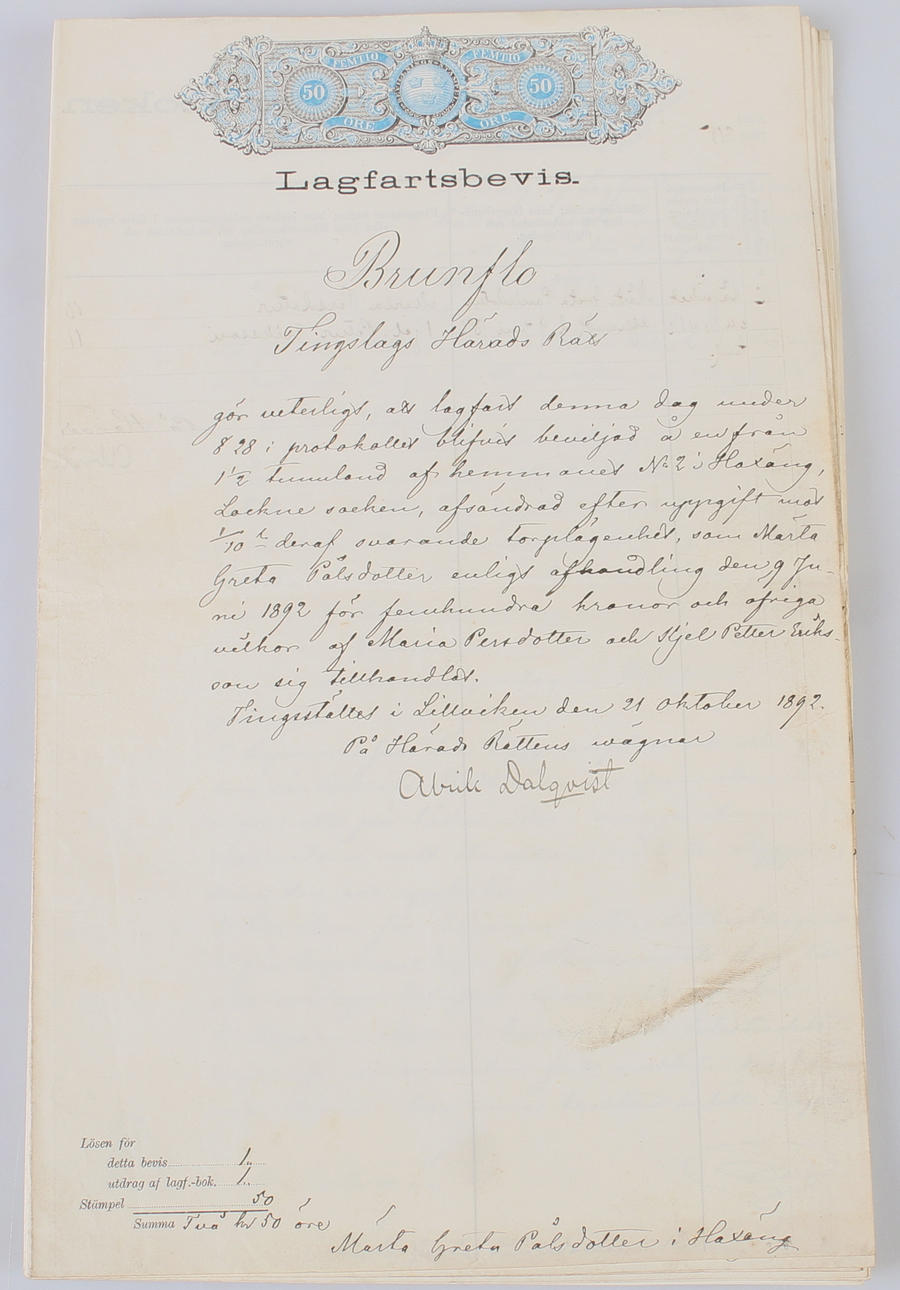 FEMTIO FEMTIO
50 50
ÖRE ÖRE
Lagfartsbevis.
Brunflo
Tingslags Härads Rätt
gör veterligt, att lagfart denna dag under
§ 28 i protokollet blifvit beviljad å en från
1 1/2 tunnland af hemmanet No 2 i Haxäng,
Lockne socken, afsöndrad efter uppgift mot
1/10 deraf svarande torplägenhet, som Märta
Greta Pålsdotter enligt afhandling den 9 Ju-
ni 1892 för femhundra kronor och öfriga
vilkor af Maria Persdotter och Kjel Petter Eriks-
son sig tillhandlat.
Tingsstället i Lillviken den 21 Oktober 1892.
På Härads Rättens wägnar
Dalqvist
Lösen för
detta bevis 1..
utdrag af lagf.-bok. 1..
Stämpel 50
Summa Två kr 50 öre
Märta Greta Pålsdotter i Haxäng